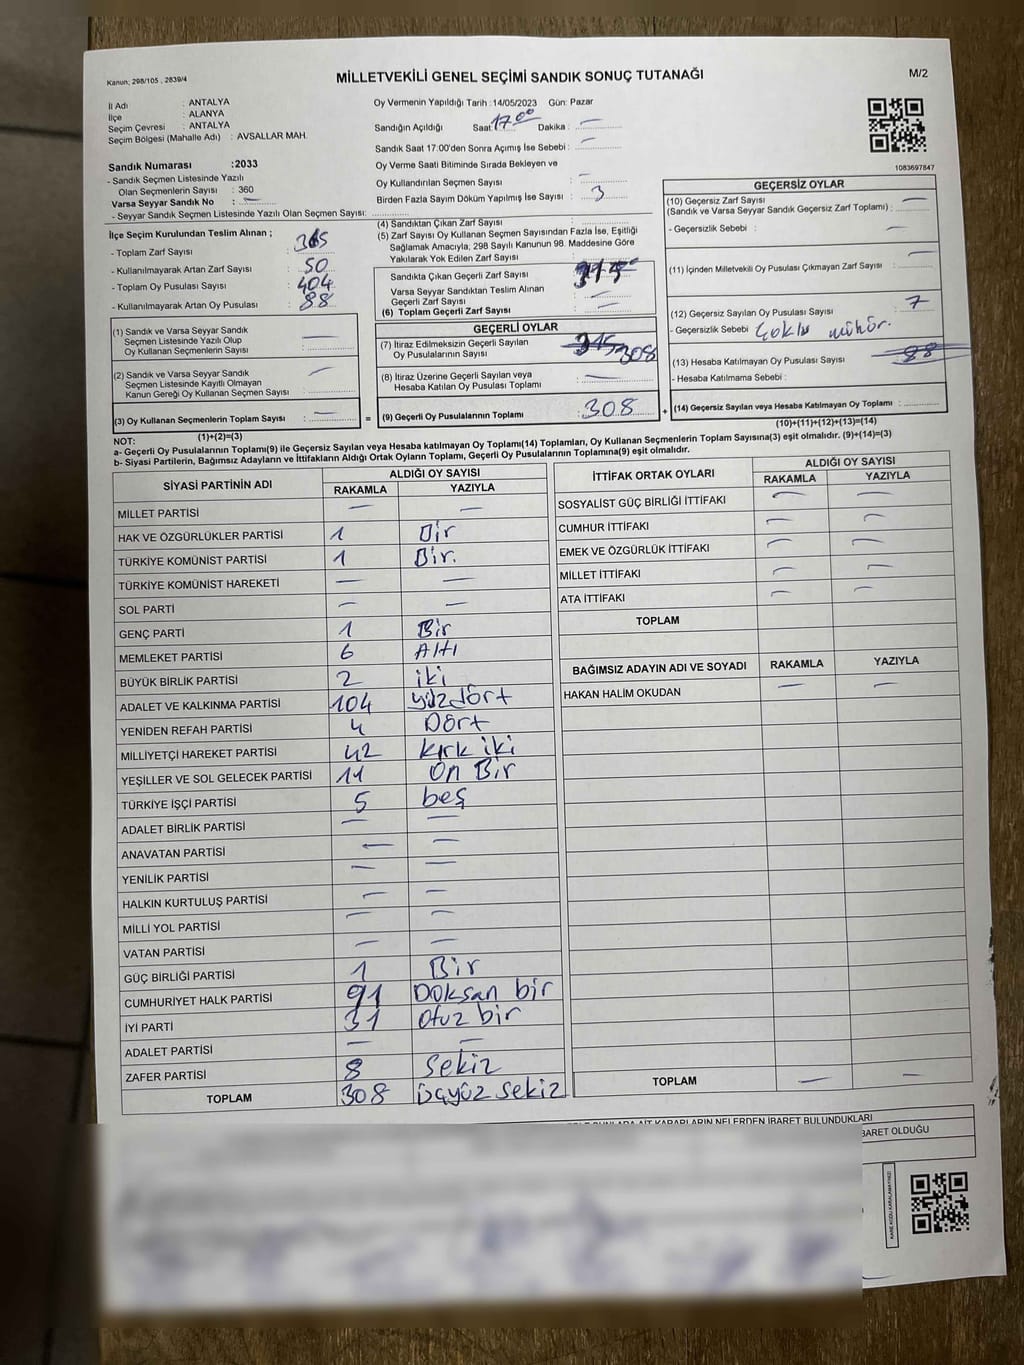 Kanun; 298/105 , 2839/4
MİLLETVEKİLİ GENEL SEÇİMİ SANDIK SONUÇ TUTANAĞI
M/2
İl Adı : ANTALYA
İlçe : ALANYA
Seçim Çevresi : ANTALYA
Seçim Bölgesi (Mahalle Adı) : AVSALLAR MAH.
Oy Vermenin Yapıldığı Tarih :14/05/2023 Gün: Pazar
Sandığın Açıldığı Saat: 17.00 Dakika : —
Sandık Saat 17.00'den Sonra Açımış İse Sebebi : —
Oy Verme Saati Bitiminde Sırada Bekleyen ve
Oy Kullandırılan Seçmen Sayısı : —
Birden Fazla Sayım Döküm Yapılmış İse Sayısı : 3
1083697847
Sandık Numarası :2033
- Sandık Seçmen Listesinde Yazılı
Olan Seçmenlerin Sayısı : 360
Varsa Seyyar Sandık No : —
- Seyyar Sandık Seçmen Listesinde Yazılı Olan Seçmen Sayısı:
İlçe Seçim Kurulundan Teslim Alınan ;
- Toplam Zarf Sayısı : 365
- Kullanılmayarak Artan Zarf Sayısı : 50
- Toplam Oy Pusulası Sayısı : 404
- Kullanılmayarak Artan Oy Pusulası : 88
(1) Sandık ve Varsa Seyyar Sandık
Seçmen Listesinde Yazılı Olup
Oy Kullanan Seçmenlerin Sayısı : —
(2) Sandık ve Varsa Seyyar Sandık
Seçmen Listesinde Kayıtlı Olmayan
Kanun Gereği Oy Kullanan Seçmen Sayısı : —
(3) Oy Kullanan Seçmenlerin Toplam Sayısı : —
(1)+(2)=(3)
(4) Sandıktan Çıkan Zarf Sayısı :
(5) Zarf Sayısı Oy Kullanan Seçmen Sayısından Fazla İse, Eşitliği
Sağlamak Amacıyla; 298 Sayılı Kanunun 98. Maddesine Göre
Yakılarak Yok Edilen Zarf Sayısı :
Sandıkta Çıkan Geçerli Zarf Sayısı : 315
Varsa Seyyar Sandıktan Teslim Alınan
Geçerli Zarf Sayısı : —
(6) Toplam Geçerli Zarf Sayısı : —
GEÇERLİ OYLAR
(7) İtiraz Edilmeksizin Geçerli Sayılan
Oy Pusulalarının Sayısı : 315 308
(8) İtiraz Üzerine Geçerli Sayılan veya
Hesaba Katılan Oy Pusulası Toplamı : —
= (9) Geçerli Oy Pusulalarının Toplamı : 308 +
GEÇERSİZ OYLAR
(10) Geçersiz Zarf Sayısı : —
(Sandık ve Varsa Seyyar Sandık Geçersiz Zarf Toplamı) :
- Geçersizlik Sebebi : —
(11) İçinden Milletvekili Oy Pusulası Çıkmayan Zarf Sayısı : —
(12) Geçersiz Sayılan Oy Pusulası Sayısı : 7
- Geçersizlik Sebebi : Çoklu mühür.
(13) Hesaba Katılmayan Oy Pusulası Sayısı : 88
- Hesaba Katılmama Sebebi :
(14) Geçersiz Sayılan veya Hesaba Katılmayan Oy Toplamı :
(10)+(11)+(12)+(13)=(14)
NOT:
a- Geçerli Oy Pusulalarının Toplamı(9) ile Geçersiz Sayılan veya Hesaba katılmayan Oy Toplamı(14) Toplamları, Oy Kullanan Seçmenlerin Toplam Sayısına(3) eşit olmalıdır. (9)+(14)=(3)
b- Siyasi Partilerin, Bağımsız Adayların ve İttifakların Aldığı Ortak Oyların Toplamı, Geçerli Oy Pusulalarının Toplamına(9) eşit olmalıdır.
SİYASİ PARTİNİN ADI ALDIĞI OY SAYISI
RAKAMLA YAZIYLA
MİLLET PARTİSİ — —
HAK VE ÖZGÜRLÜKLER PARTİSİ 1 Bir
TÜRKİYE KOMÜNİST PARTİSİ 1 Bir.
TÜRKİYE KOMÜNİST HAREKETİ — —
SOL PARTİ — —
GENÇ PARTİ 1 Bir
MEMLEKET PARTİSİ 6 Altı
BÜYÜK BİRLİK PARTİSİ 2 iki
ADALET VE KALKINMA PARTİSİ 104 yüzdört
YENİDEN REFAH PARTİSİ 4 Dört
MİLLİYETÇİ HAREKET PARTİSİ 42 kırk iki
YEŞİLLER VE SOL GELECEK PARTİSİ 11 On Bir
TÜRKİYE İŞÇİ PARTİSİ 5 beş
ADALET BİRLİK PARTİSİ — —
ANAVATAN PARTİSİ — —
YENİLİK PARTİSİ — —
HALKIN KURTULUŞ PARTİSİ — —
MİLLİ YOL PARTİSİ — —
VATAN PARTİSİ — —
GÜÇ BİRLİĞİ PARTİSİ 1 Bir
CUMHURİYET HALK PARTİSİ 91 Doksan bir
İYİ PARTİ 31 Otuz bir
ADALET PARTİSİ — —
ZAFER PARTİSİ 8 Sekiz
TOPLAM 308 üçyüz sekiz
İTTİFAK ORTAK OYLARI ALDIĞI OY SAYISI
RAKAMLA YAZIYLA
SOSYALİST GÜÇ BİRLİĞİ İTTİFAKI — —
CUMHUR İTTİFAKI — —
EMEK VE ÖZGÜRLÜK İTTİFAKI — —
MİLLET İTTİFAKI — —
ATA İTTİFAKI — —
TOPLAM
BAĞIMSIZ ADAYIN ADI VE SOYADI RAKAMLA YAZIYLA
HAKAN HALİM OKUDAN — —
TOPLAM — —
KARARLARIN NELERDEN İBARET BULUNDUKLARI
İBARET OLDUĞU